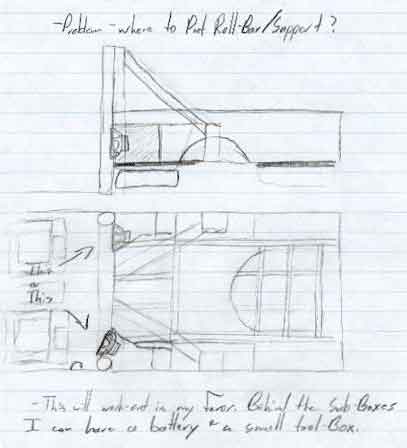 -Problem - where to Put Roll-Bar/Support?
This
or
This
-This will work-out in my favor. Behind the Sub-Boxes
I can have a battery & a small tool-Box.